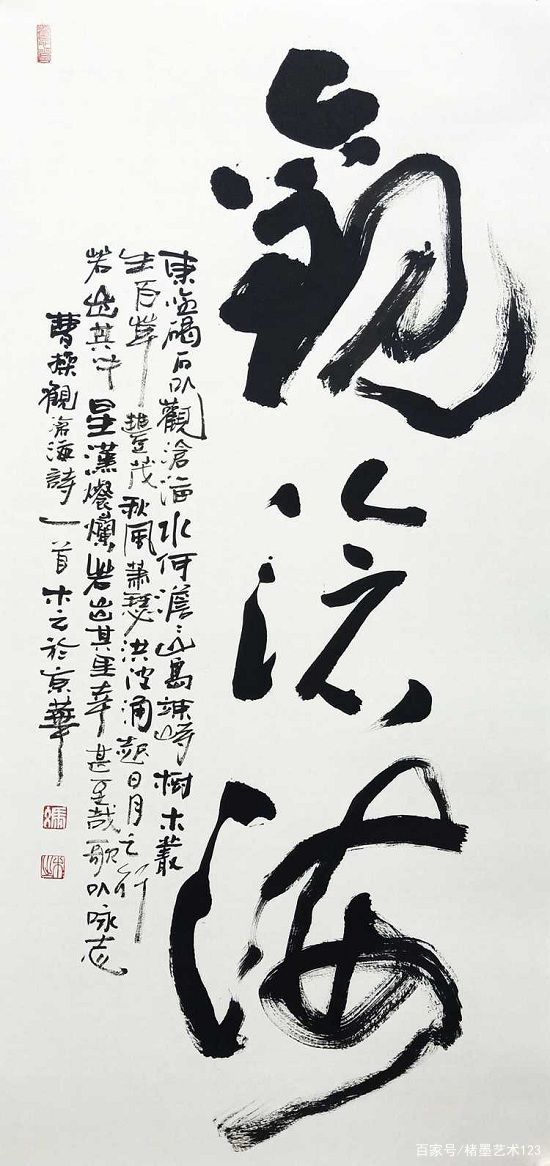 觀滄海
東臨碣石以觀滄海水何澹〻山島竦峙樹木叢
生百草豐茂秋風蕭瑟洪波涌起日月之行
若出其中星漢燦爛若出其里幸甚至哉歌以咏志
曹操觀滄海詩一首木於京華
百家号/楮墨艺术123